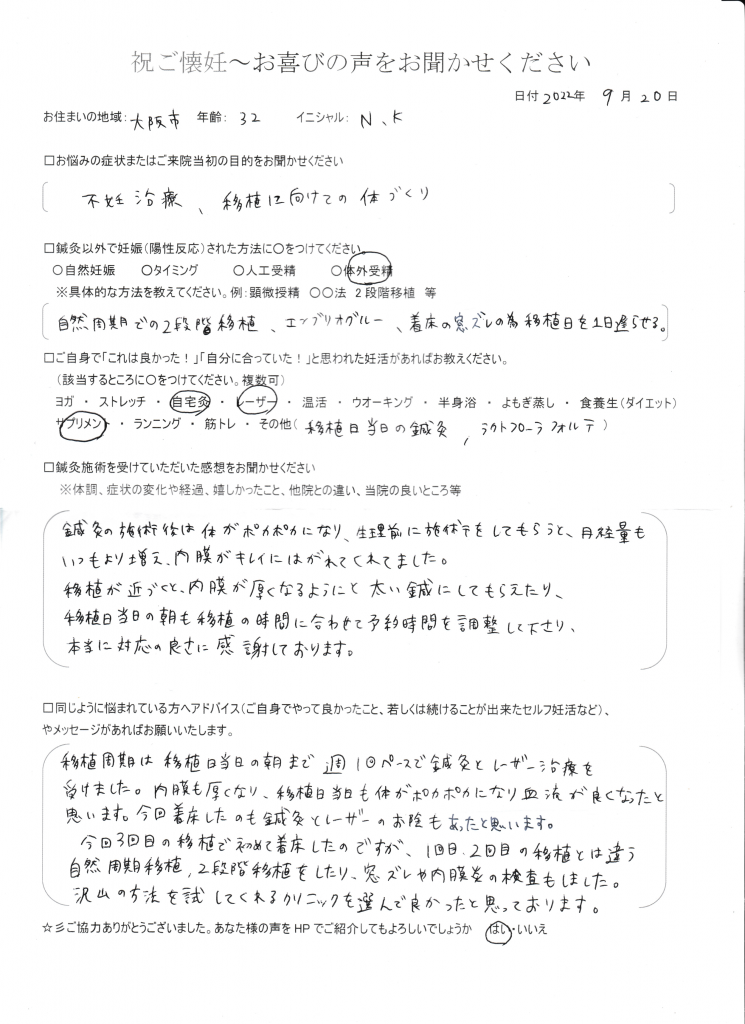 祝ご懐妊～お喜びの声をお聞かせください
日付 2022年 9月 20日
お住まいの地域: 大阪市 年齢: 32 イニシャル: N、K
□お悩みの症状またはご来院当初の目的をお聞かせください
不妊治療、移植に向けての体づくり
□鍼灸以外で妊娠(陽性反応)された方法に○をつけてください。
○自然妊娠 ○タイミング ○人工受精 ○体外受精
※具体的な方法を教えてください。例: 顕微授精 ○○法 2段階移植 等
自然周期での2段階移植、エンブリオグルー、着床の窓ズレの為移植日を1日遅らせる。
□ご自身で「これは良かった！」「自分に合っていた！」と思われた妊活があればお教えください。
(該当するところに○をつけてください。複数可)
ヨガ ・ ストレッチ ・ 自宅灸 ・ レーザー ・ 温活 ・ ウオーキング ・ 半身浴 ・ よもぎ蒸し ・ 食養生(ダイエット)
サプリメント ・ ランニング ・ 筋トレ ・ その他( 移植日当日の鍼灸 , ラクトフローラフォルテ )
□鍼灸施術を受けていただいた感想をお聞かせください
※体調、症状の変化や経過、嬉しかったこと、他院との違い、当院の良いところ等
鍼灸の施術後は体がポカポカになり、生理前に施術をしてもらうと、月経量も
いつもより増え、内膜がキレイにはがれてくれてました。
移植が近づくと、内膜が厚くなるようにと太い鍼にしてもらえたり、
移植日当日の朝も移植の時間に合わせて予約時間を調整して下さり、
本当に対応の良さに感謝しております。
□同じように悩まれている方へアドバイス(ご自身でやって良かったこと、若しくは続けることが出来たセルフ妊活など)、
やメッセージがあればお願いいたします。
移植周期は移植日当日の朝まで週1回ペースで鍼灸とレーザー治療を
受けました。内膜も厚くなり、移植日当日も体がポカポカになり血流が良くなったと
思います。今回着床したのも鍼灸とレーザーのお陰もあったと思います。
今回3回目の移植で初めて着床したのですが、1回目、2回目の移植とは違う
自然周期移植, 2段階移植をしたり、窓ズレや内膜炎の検査もしました。
沢山の方法を試してくれるクリニックを選んで良かったと思っております。
☆彡ご協力ありがとうございました。あなた様の声をHPでご紹介してもよろしいでしょうか はい・いいえ